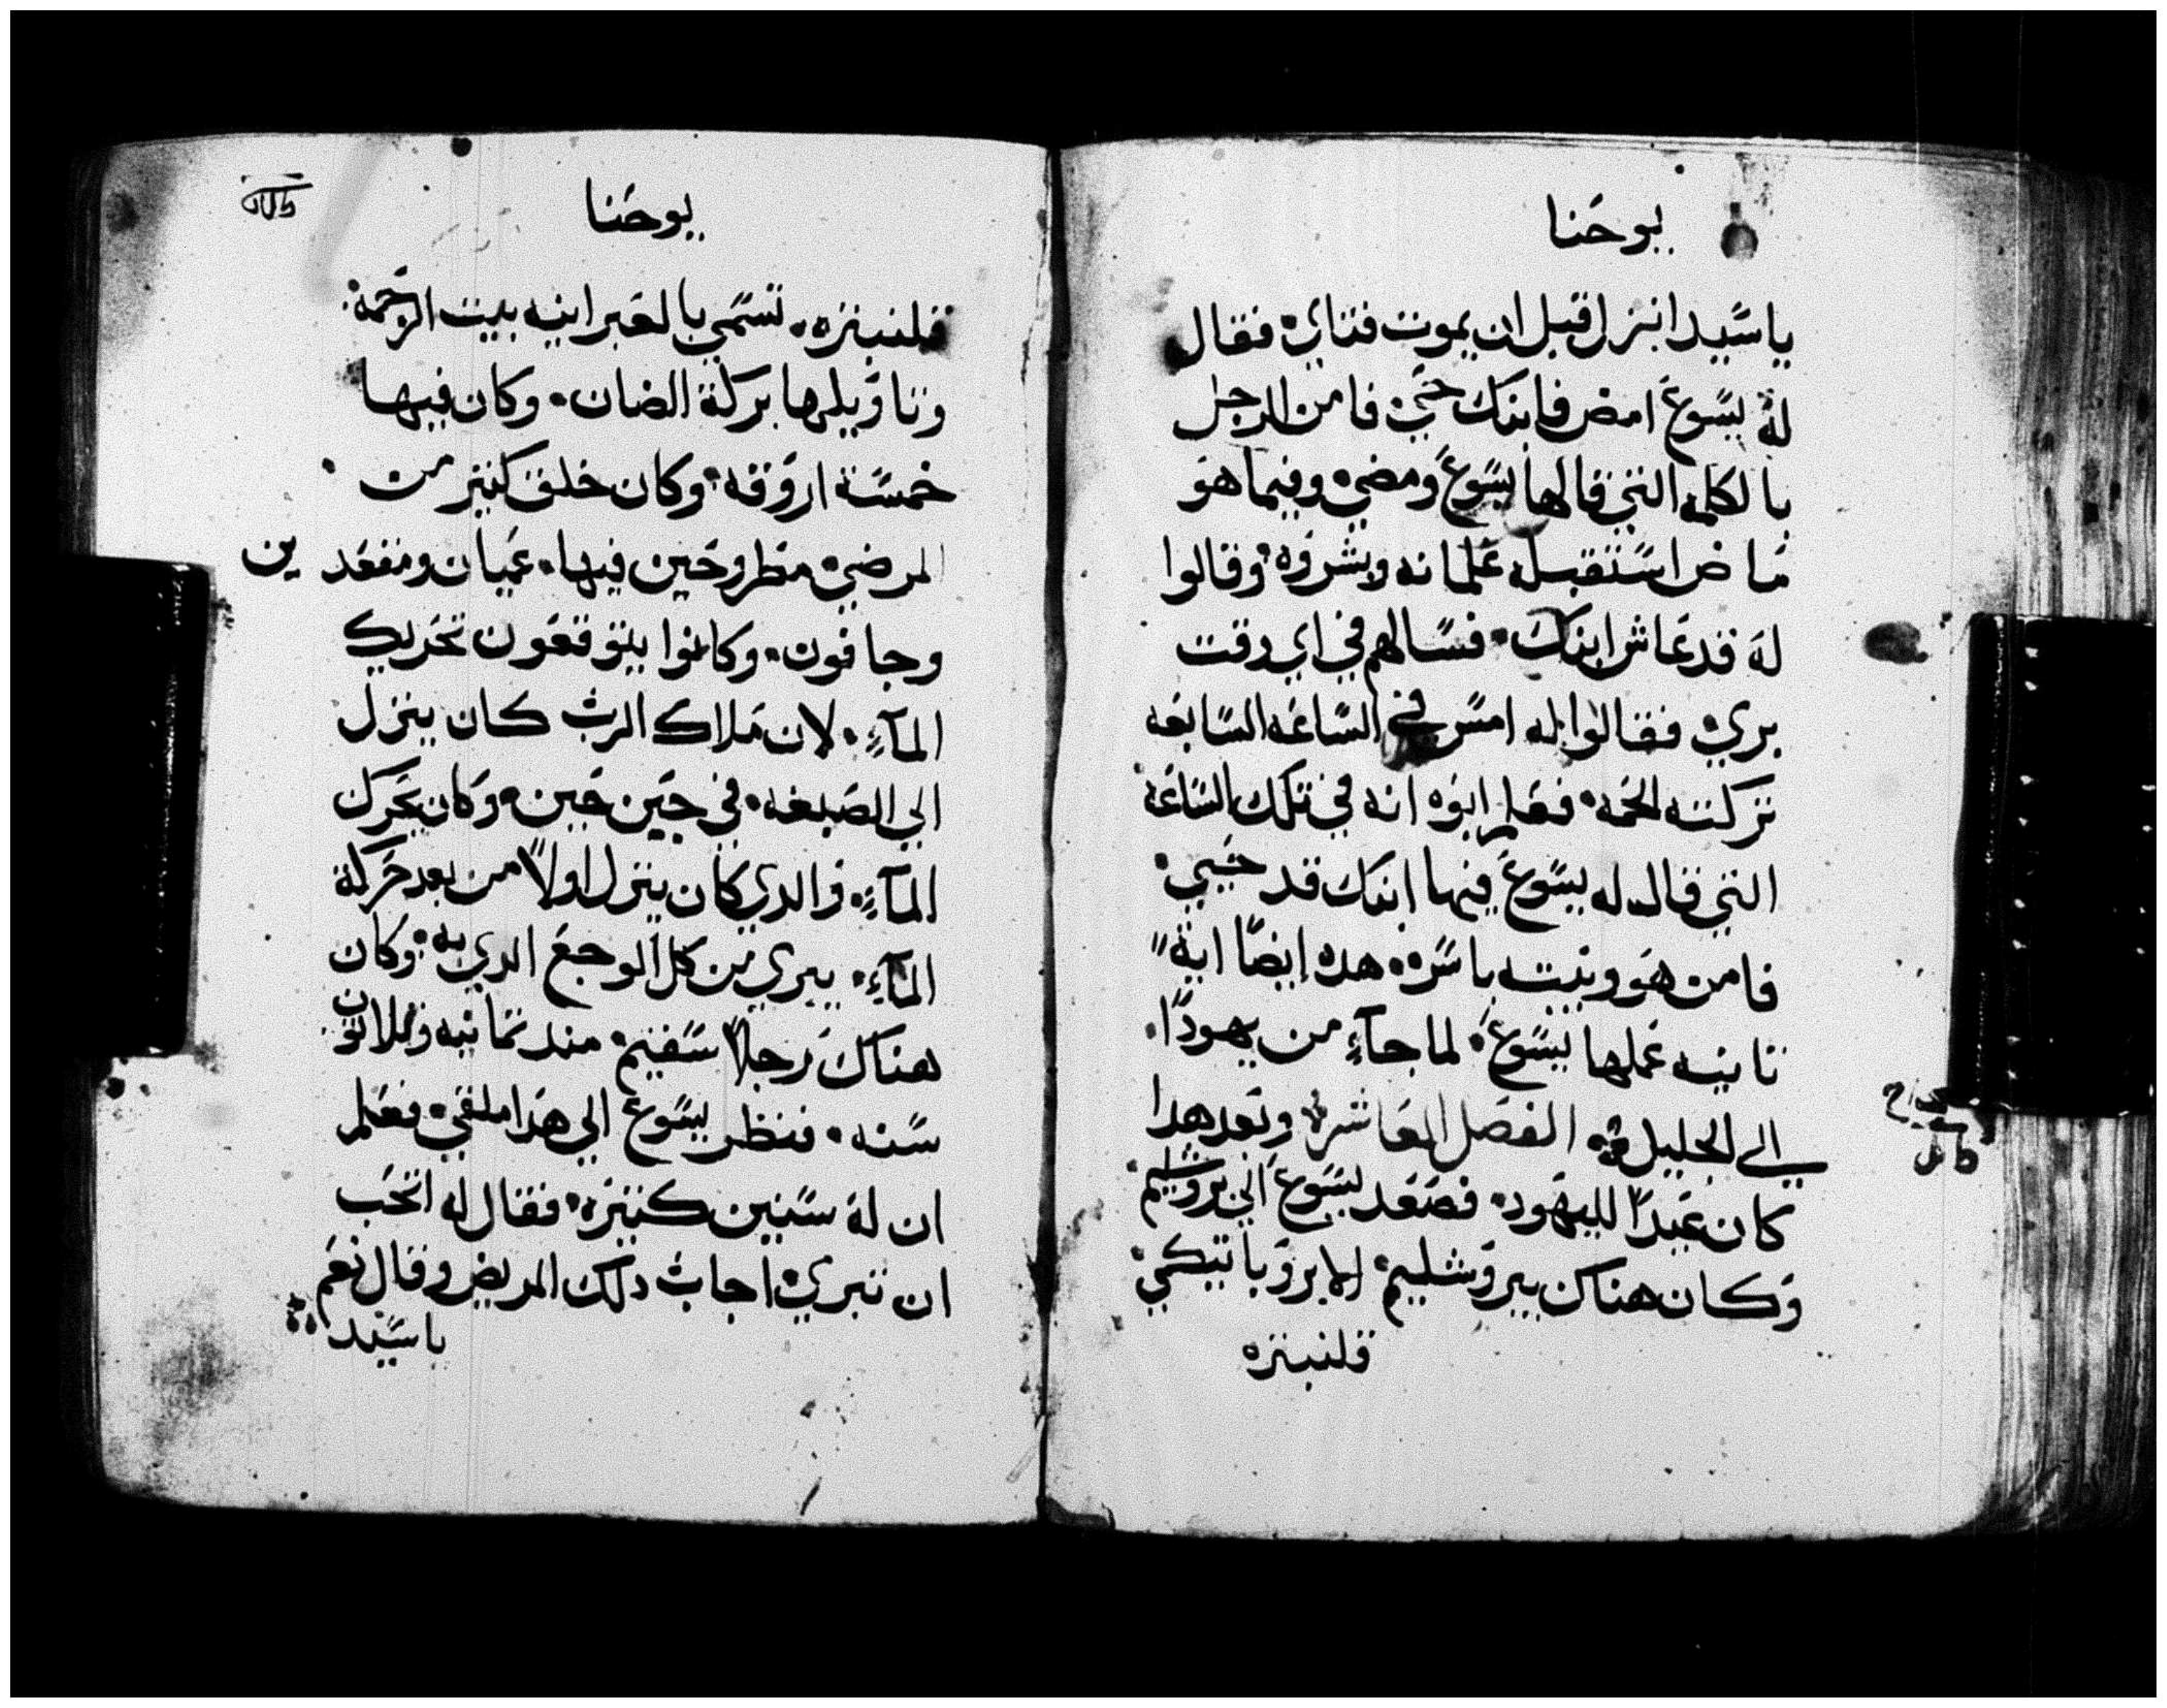 يوحنا
ياسيد انزل قبل ان يموت فتاي فقال
له يسوع امض فابنك حي فامن الرجل
بالكلمه التي قالها يسوع ومضي وفيما هو
ماض استقبله غلمانه وبشروه وقالوا
له قد عاش ابنك فسالهم في اي وقت
بري فقالوا له امس في الساعه السابعه
تركته الحمه فعلم ابوه انه في تلك الساعه
التي قال له يسوع فيها ابنك قد حيي
فامن هو وبيته باسره هده ايضًا ايةً
تانيه عملها يسوع لما جآءٍ من يهودا
الي الجليل الفصل العاشر وبعد هدا
كان عيدًا لليهود فصعد يسوع الي يروشليم
وكان هناك بيروشليم الابروباتيكي
قلنبتره
يوحنا
قلنبتره تسمي بالعبرانيه بيت الرحمه
وتاويلها بركة الضان وكان فيها
خمسة اروقه وكان خلف كتير من
المرضي مطروحين فيها عميان ومقعدين
وجافون وكانوا يتوقعون تحريك
المآءٍ لان ملاك الرب كان ينزل
الي الصبغه في حين حين وكان يحرك
المآءٍ والدي كان ينزل اولاً من بعد حركة
المآءٍ يبري من كل الوجع الدي به وكان
هناك رجلاً سقيم مند تمانيه وتلاتون
سنه فنظر يسوع الي هدا ملقي فعلم
ان له سنين كتيره فقال له اتحب
ان تبري اجاب دلك المريض وقال نعم
ياسيد